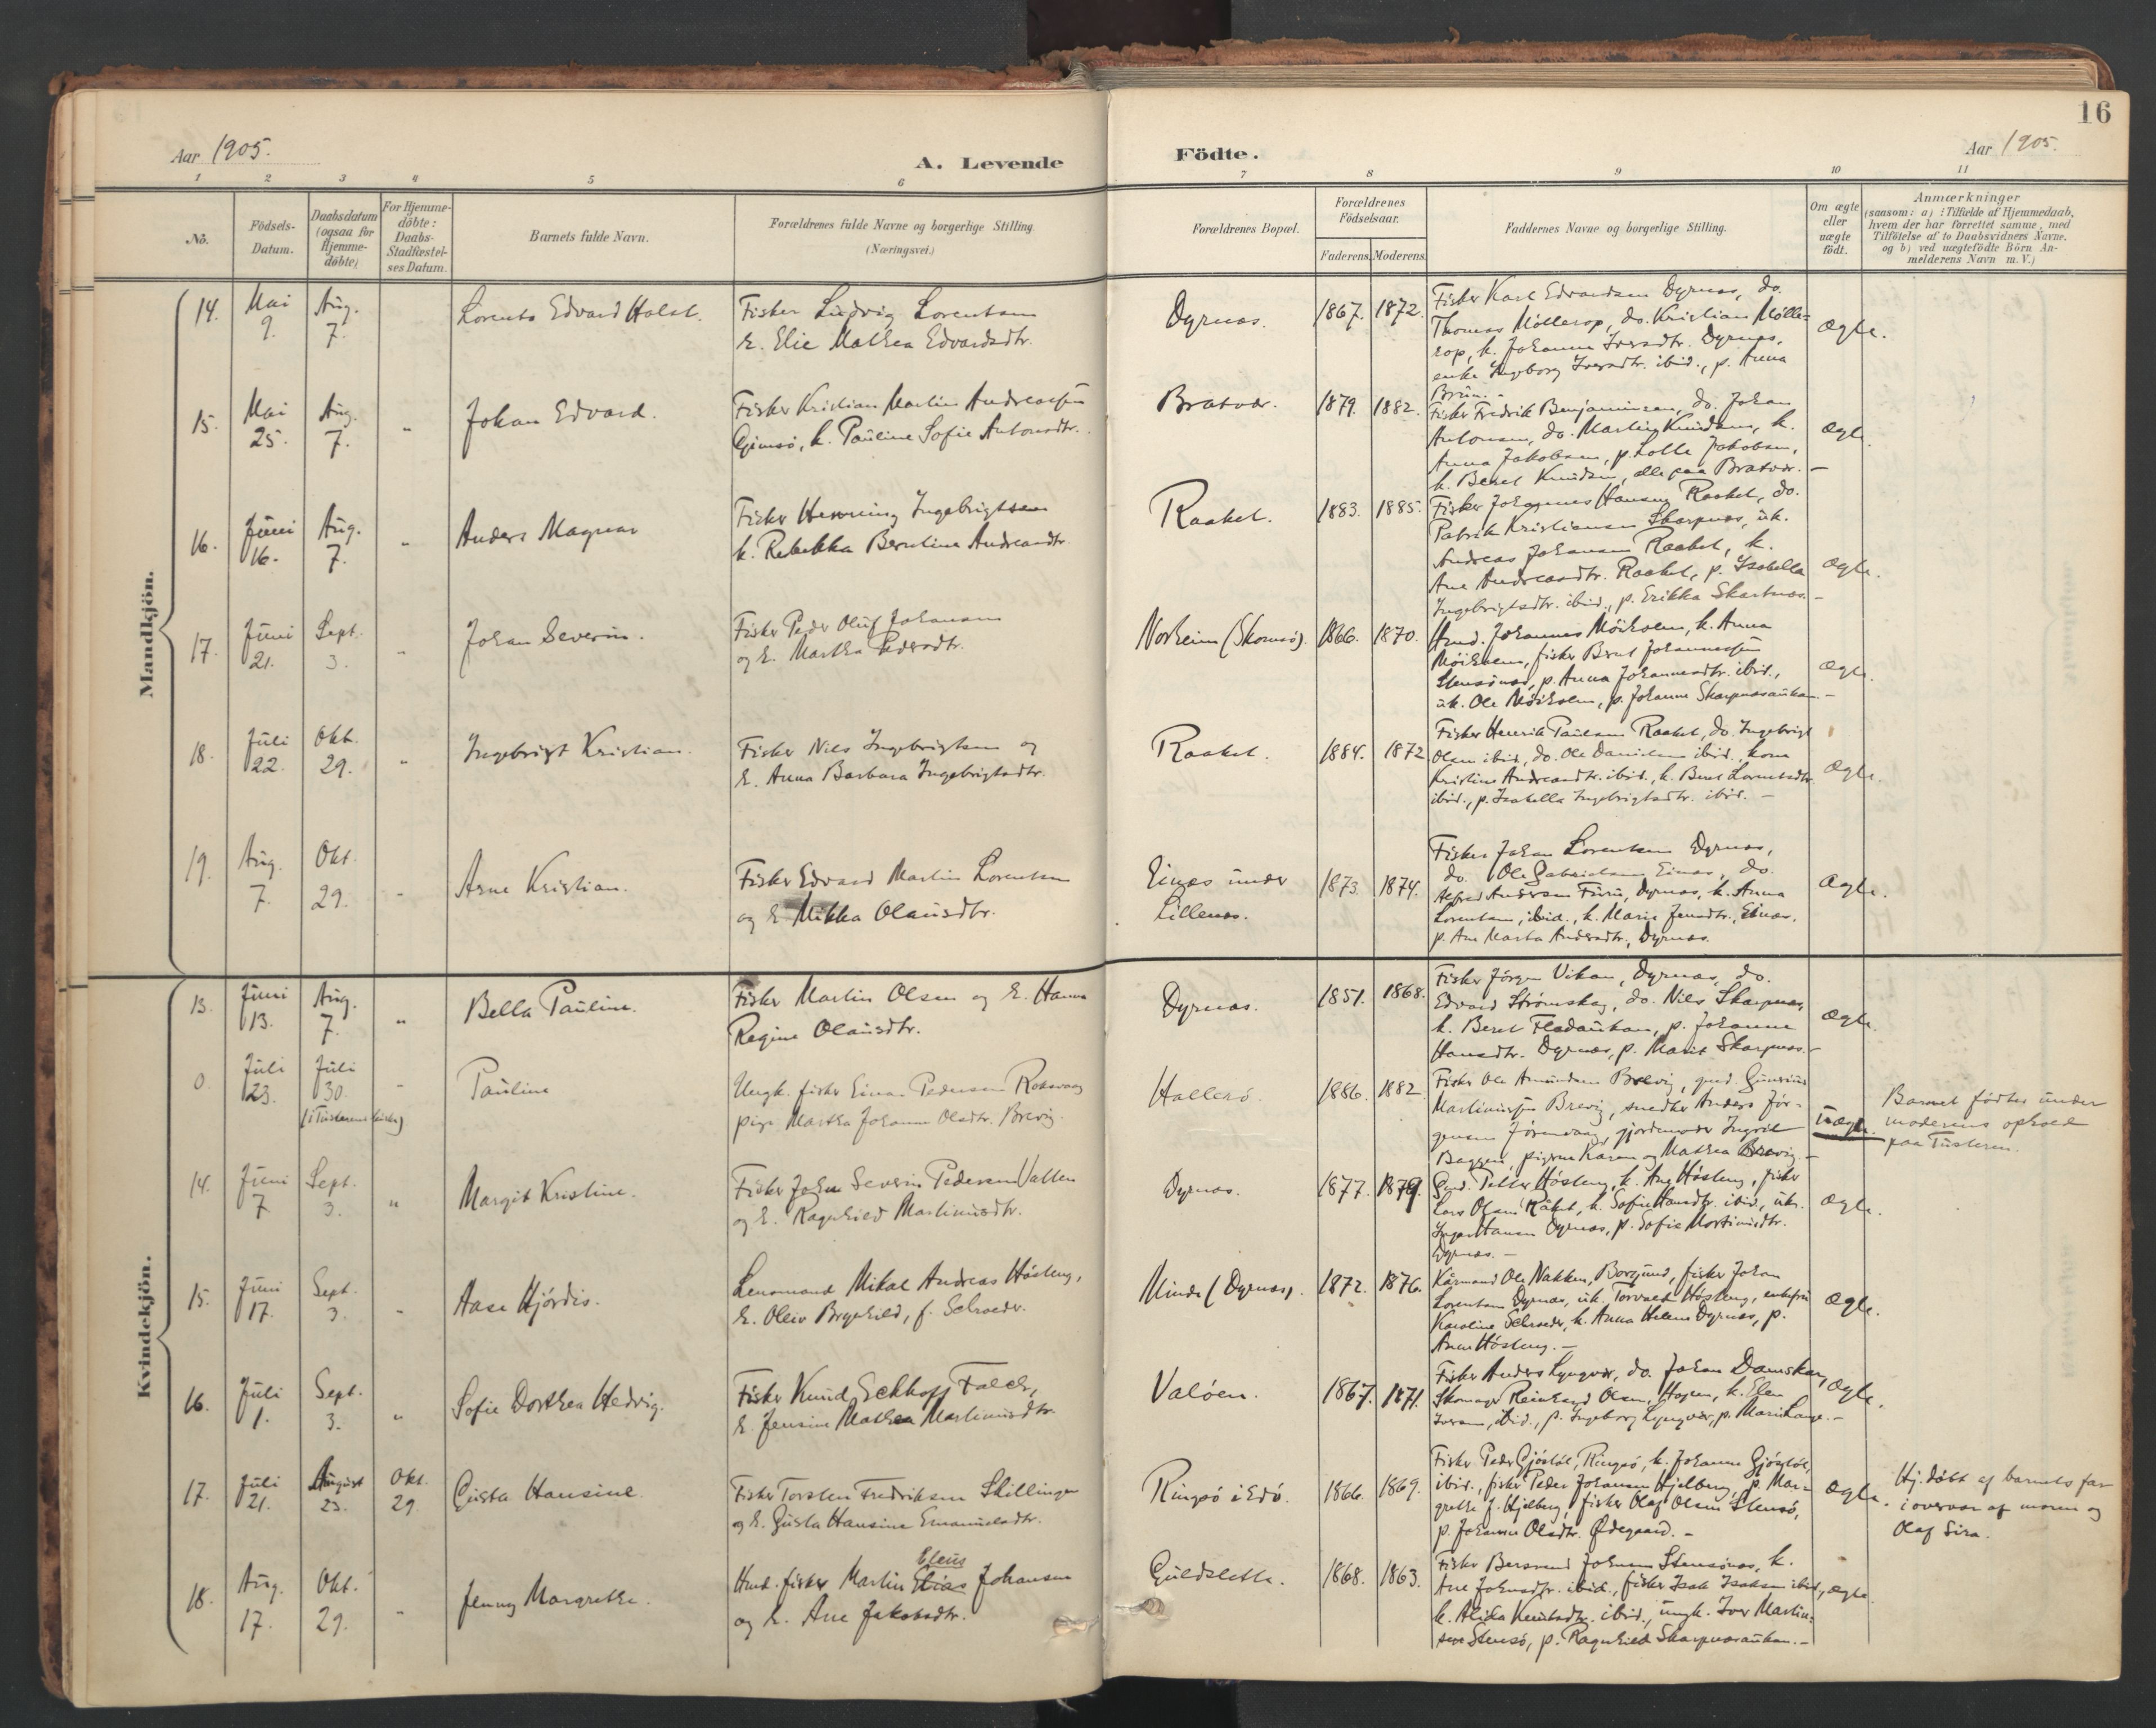 16
Aar 1905.
A. Levende Födte.
Aar 1905.
1 2 3 4 5 6 7 8 9 10 11
No.
Födsels-Datum.
Daabsdatum (ogsaa for Hjemme-döbte)
For Hjemme-döbte: Daabs-Stadfæstel-ses Datum.
Barnets fulde Navn.
Forældrenes fulde Navne og borgerlige Stilling
(Næringsvei.)
Forældrenes Bopæl.
Forældrenes Födselsaar.
Faderens. Moderens.
Faddernes Navne og borgerlige Stilling.
Om ægte eller uægte födt.
Anmærkninger
(saasom: a) : Tilfælde af Hjemmedaab,
hvem der har forrettet samme, med
Tilföielse af to Daabsvidners Navne.
og b) ved uægtefödte Börn An-
melderens Navn m. V.)
Mandkjön.
14. Mai 9. Aug. 7. Lorents Edvard Holst.
Fisker Ludvig Lorentsen
h. Elie Mathea Edvardsdtr.
Dyrnæs. 1867. 1872.
Fisker Karl Edvardsen Dyrnæs, do.
Thomas Möllerop, do. Kristian Mölle-
rop, h. Johanna Iversdtr. Dyrnæs,
enke Ingeborg Iversdtr. ibid., p. Anna
Brün. -
Ægte.
15. Mai 25. Aug. 7. " Johan Edvard.
Fisker Kristian Martin Andreassen
Gimsö, h. Pauline Sofie Antonsdtr.
Bratvær. 1879. 1882.
Fisker Fredrik Benjaminsen, do. Johan
Antonsen, do. Martin Knudsen, h.
Anna Jakobsen, p. Lotte Jakobsen,
h. Beret Knudsen, alle paa Bratvær. -
Ægte.
16. Juni 16. Aug. 7. " Anders Magnar
Fisker Henning Ingebrigtsen
h. Rebekka Berntine Andreasdtr.
Raaket. 1883. 1885.
Fisker Johannes Hansen Raaket, do.
Patrik Kristiansen Skarpnæs, uk.
Andreas Johansen Raaket, h.
Ane Andreasdtr. Raaket, p. Isabella
Ingebrigtsdtr. ibid., p. Erikka Skartnæs. -
Ægte.
17. Juni 21. Sept. 3. " Johan Severin.
Fisker Peder Oluf Johansen
og h. Martha Pedersdtr.
Norheim (Skomsö). 1866. 1870.
Arnd. Johannes Möikolm, h. Anna
Möikolm, fisker Bernt Johannessen
Stensönæs, p. Anna Johannesdtr. ibid.,
uk. Ole Möikolm, p. Johanne Skarpnæsaukan. -
Ægte.
18. Juli 22. Okt. 29. " Ingebrigt Kristian.
Fisker Nils Ingebrigtsen og
h. Anna Barbara Ingebrigtsdtr.
Raaket. 1884. 1872
Fisker Henrik Paulsen Raaket, do. Ingebrigt
Olsen ibid., do. Ole Danielsen ibid., kone
Kristine Andreasdtr. ibid., h. Beret Lorentsdtr.
ibid., p. Isabella Ingebrigtsdtr. ibid. -
Ægte.
19. Aug. 7. Okt. 29. " Arne Kristian.
Fisker Edvard Martin Lorentsen
og h. Mikka Olausdtr.
Einæs under
Lillenæs.
1873. 1874.
Fisker Johan Lorentsen Dyrnæs,
do. Ole Gabrielsen Einæs, do.
Alfred Andersen Furu, Dyrnæs, h. Anna
Lorentsen, ibid., h. Marie Jensdtr., Einæs,
p. Ane Marta Andersdtr., Dyrnæs.
Ægte.
Kvindekjön.
13. Juni 13. Aug. 7. " Bella Pauline.
Fisker Martin Olsen og h. Hanna
Regine Olausdtr.
Dyrnæs. 1851. 1868.
Fisker Jörgen Vikan, Dyrnæs, do.
Edvard Strömskag, do. Nils Skarpnæs,
h. Beret Fladaukan, p. Johanne
Hansdtr. Dyrnæs, p. Marit Skarpnæs. -
Ægte.
0. Juli 23. Juli 30. (i Tusteren kirke) " Pauline
Ungk. fisker Einar Pedersen Roksvaag
pige Martha Johanne Olsdtr. Brevig.
Hallersö. 1886. 1882.
Fisker Ole Amundsen Brevig, gmd. Gunerius
Martinussen Brevig, snedker Anders Jör-
gensen Jörenvaag, gjordemoder Ingrid
Baggen, pigerne Karen og Mathea Brevig. -
Uægte.
Barnet födtes under
moderens ophold
paa Tusteren.
14. Juni 7. Sept. 3. " Margit Kristine.
Fisker Johan Severin Pedersen Vatten
og h. Ragnhild Martinusdtr.
Dyrnæs. 1877. 1879.
Gmd. Petter Hösteng, h. Ane Hösteng, fisker
Lars Olsen Raket, h. Sofie Hansdtr. ibid., uk.
Inger Hansen Dyrnæs, p. Sofie Martinusdtr.
Dyrnæs. -
Ægte.
15. Juni 17. Sept. 3. " Aase Hjördis.
Lensmand Mikal Andreas Hösteng,
h. Oleiv Brynhild, f. Schroeder.
Minde (Dyrnæs). 1872. 1876.
Kårmand Ole Nakken, Borgund, fisker Johan
Lorentsen Dyrnæs, uk. Torvald Hösteng, enkefru
Karoline Schroeder, h. Anna Helene Dyrnæs, p.
Anne Hösteng. -
Ægte.
16. Juli 1. Sept. 3. " Sofie Dorthea Hedvig.
Fisker Knud Eckhoff Falch,
h. Jensine Mathea Martinusdtr.
Valöen. 1867. 1871.
Fisker Anders Lyngvær, do. Johan Damskan,
Skomager Reinhard Olsen, Hopen, h. Elen
Iversen, ibid., p. Ingeborg Lyngvær, p. Marie Lange. -
Ægte.
17. Juli 21. August 23. Okt. 29. Gusta Hansine
Fisker Torsten Fredriksen Skillingen
og h. Gusta Hansine Emanuelsdtr.
Ringsö i Edö. 1866. 1869.
Fisker Peder Gjöstöl, Ringsö, h. Johanne Gjöstöl,
ibid., fisker Peder Johansen Hjelberg, p. Mar-
grethe J. Hjelberg, fisker Olaf Olsen Stensö,
p. Johanne Olsdtr. Ødegaard. -
Ægte.
Hj. döbt af barnets far
i overvær af moren og
Olaf Sira.
18. Aug. 17. Okt. 29. " Jenny Margrethe.
Eleus
Hmd. fisker Martin Elias Johansen
og h. Ane Jakobsdtr.
Guldsletta. 1868. 1863.
Fisker Bersvend Johnsen Stensönæs, h.
Ane Johnsdtr. ibid., fisker Isak Isaksen ibid.,
h. Alida Knutsdtr. ibid., ungk. Iver Martin-
sen Stensö, p. Ragnhild Skarpnæsaukan. -
Ægte.